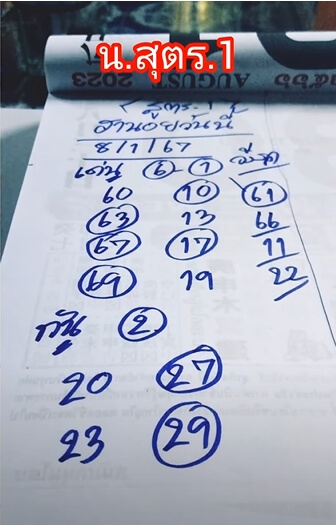 น.สุตร.1
AUGUST 2023
สูตร.1
ฮานอยวันนี้
8/1/67
เด่น 6-1
60 10 61
63 13 66
67 17 11
69 19 22
กัน 2
20 27
23 29